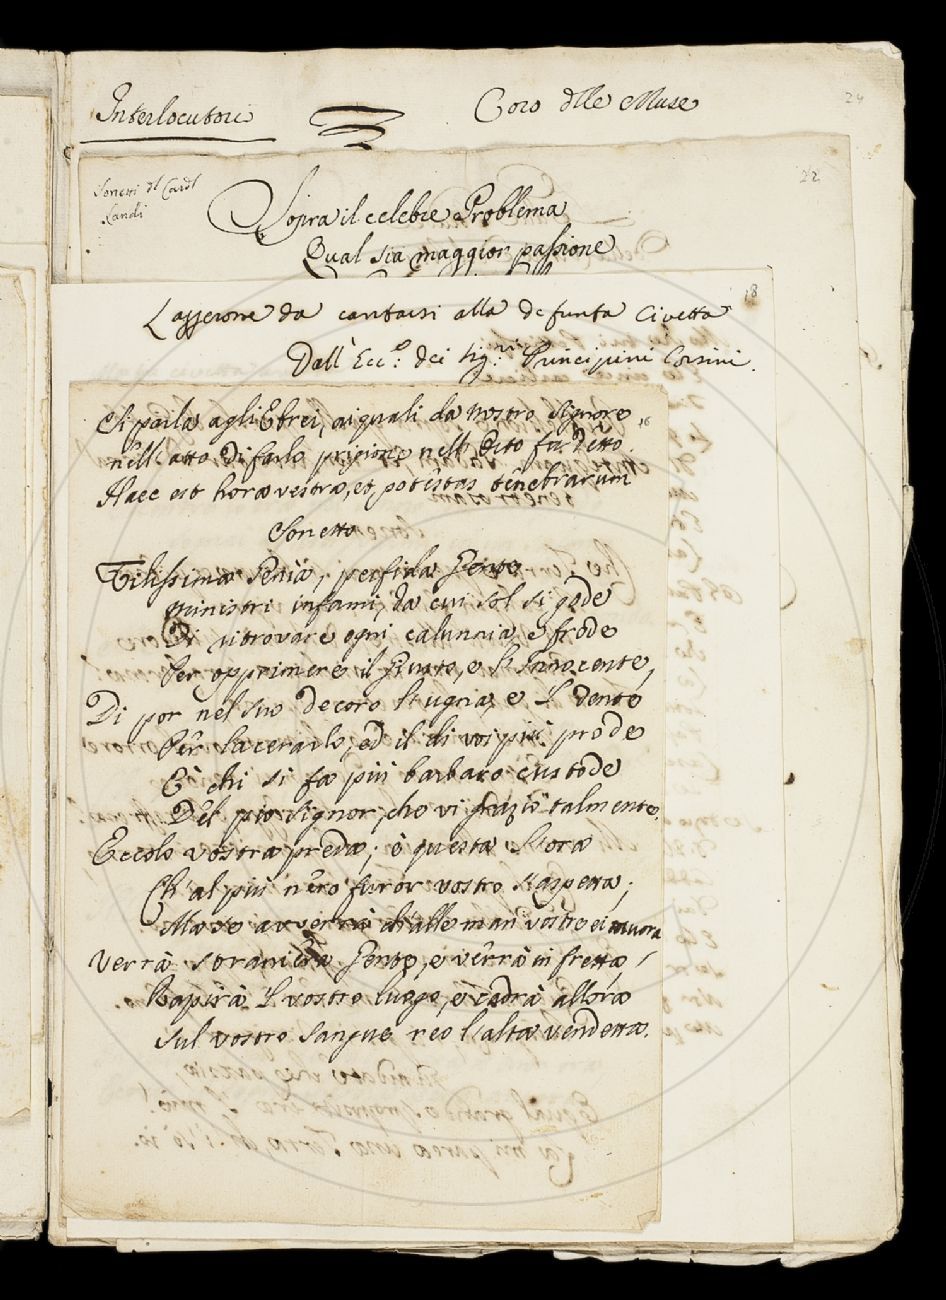 Interlocutori
Coro dlle Muse
24
22
Sonetti dl Cardl
Landi
Sopra il celebre Problema
Qual sia maggior passione
18
da cantarsi alla defunta Civetta
Dall' Ecc.: dei Sig.ri Principini Corsini.
Si parla agli Ebrei, ai quali da nostro Signore
nell'atto di farlo prigione nell' Orto fù detto.
16
Haec est hora vestra, et potestas tenebrarum
Sonetto
Vilissima Genia, perfida Gente
Ministri infami, da cui sol si gode
Di ritrovare ogni calunnia, e frode
Per opprimere il Giusto, e l'Innocente,
Di por nel suo decoro l'ugna, e 'l dente
Per lacerarlo, ed il di voi più prode
È chi si fa più barbaro custode
Del pio Signor, che vi graziò talmente.
Eccolo vostra preda; è questa l'ora
Ch'al più nero furor vostro s'aspetta;
Ma se avverrà ch'alle man vostre ei muora
Verrà straniera Gente, e verrà in fretta,
Rapirà 'l vostro luogo, e cadrà allora
Sul vostro sangue reo l'alta vendetta.